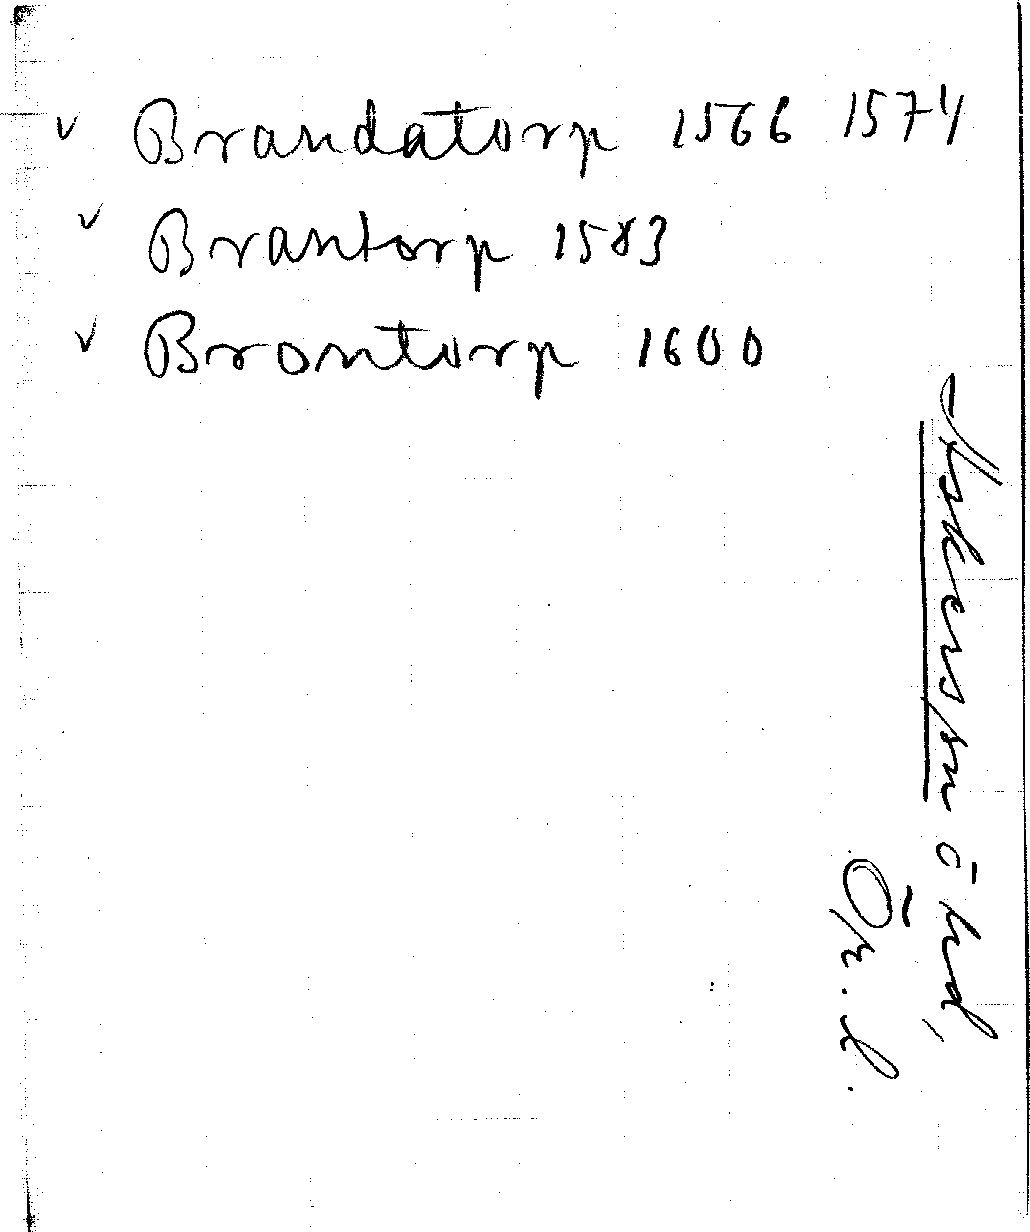 v Brandatorp 1566 1574
v Brantorp 1583
v Brontorp 1600
Askers sn ö hd,
Ör. l.